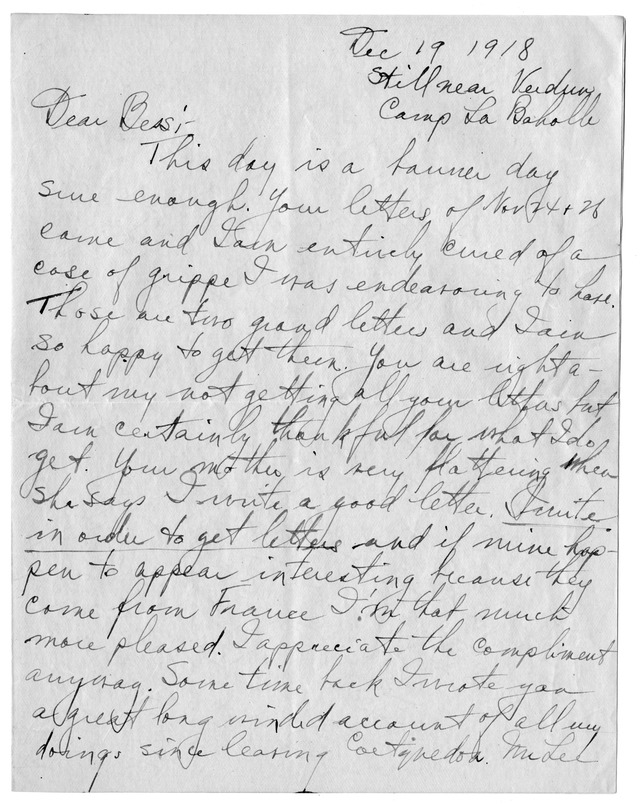 Dec 19 1918
Still near Verdun
Camp La Baholle
Dear Bess:-
This day is a banner day
sure enough. Your letters of Nov 24 + 26
came and I am entirely cured of a
case of grippe I was endeavoring to have.
Those are two grand letters and I am
so happy to get them. You are right a-
bout my not getting all your letters but
I am certainly thankful for what I do
get. Your mother is very flattering when
she says I write a good letter. I write
in order to get letters and if mine hap-
pen to appear interesting because they
come from France I'm that much
more pleased. I appreciate the compliment
anyway. Some time back I wrote you
a great long winded account of all my
doings since leaving Coetquidon.